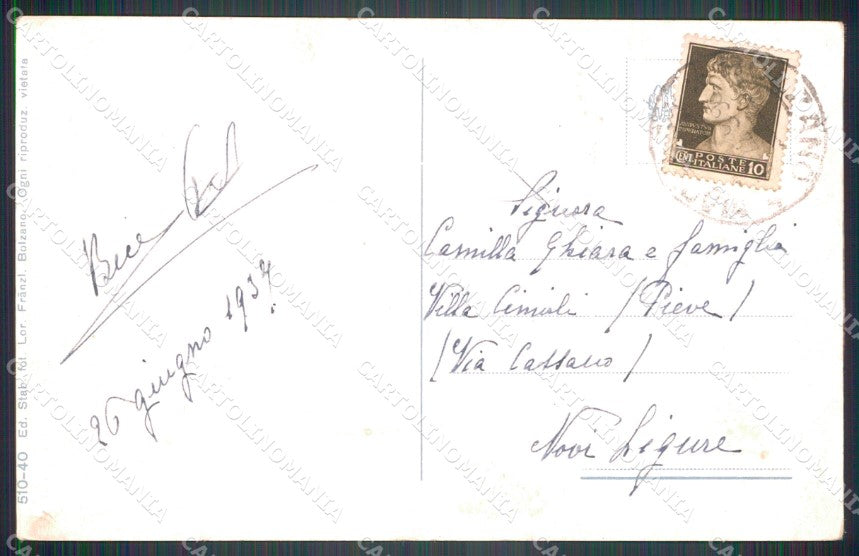 510-40 Ed. Stab. fot. Lor. Fränzl. Bolzano. Ogni riproduz. vietata
Bice
26 giugno 1937.
POSTE
CENT. ITALIANE 10
Signora
Camilla Ghiara e famiglia
Villa Cimioli (Pieve)
(Via Cassano)
Novi Ligure
CARTOLINOMANIA